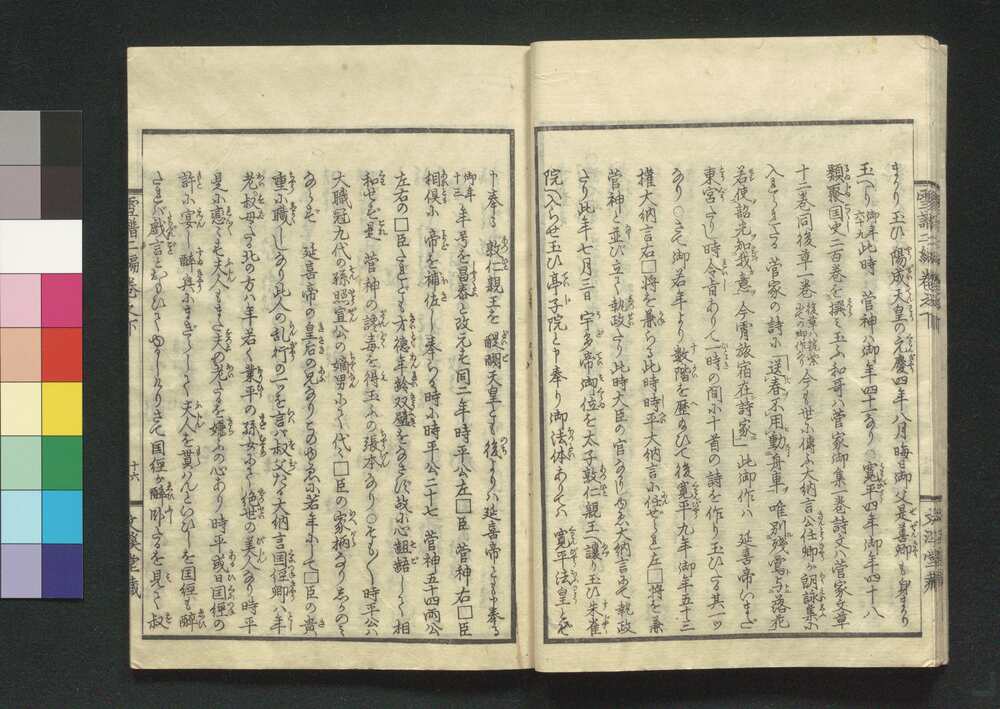 まかり玉ひ 陽成天皇の元慶四年八月晦日御父是善卿も身まかり
玉へり 御年六十九 此時 菅神ハ御年四十一なり ○寛平四年御年四十八
類聚国史二百巻を撰玉ふ和哥ハ菅家御集一巻詩文ハ菅家文章
十二巻同後草一巻 今も世に傳ふ大納言公任卿が朗詠集に
入さる 菅家の詩に「送春不用動舟車 唯別残鴬与落花
若使韶光知我意 今宵旅宿在詩家」此御作ハ 延喜帝いまだ
東宮たりし時令旨ありて一時の間に十首の詩を作り玉ひたる其一ッ
なり ○さて御若年より数階を歴玉ひて後寛平九年御年五十三
権大納言右□将を兼らる此時時平大納言に任ぜられ左□将を兼
菅神と並び立て執政たり此時大臣の官なかりしゆゑ大納言にて執政
たり此年七月三日 宇多帝御位を太子敦仁親王へ譲り玉ひ朱雀
院へ入らせ玉ひ亭子院と申奉り御法体ありては 寛平法皇とも
申奉る 敦仁親王を 醍醐天皇とも 後よりハ延喜帝とも申奉る
御年十三 年号を昌泰と改元す同二年時平公左□臣 菅神右□臣
相倶に 帝を補佐し奉らる時に時平公二十七 菅神五十四両公
左右の□臣たれども才徳年齢双璧をなさず故に心齟齬して相
和せず是 菅神の讒毒を得玉ふの張本なり ○そもく時平公ハ
大職冠九代の孫照宣公の嫡男にて代々□臣の家柄なりしかのミ
ならず 延喜帝の皇后の兄なりこのゆゑに若年にして□臣の貴
重に職しゝなり此人の乱行の一ッを言ハ叔父たる大納言国経卿ハ年
老叔母たる北の方ハ年若く業平の孫女にて絶世の美人なり時平
是に恋々す夫人もまた夫の老たるを嫌ふの心あり時平或日国経の
許に宴し酔興にまぎらして夫人を貰はんといひしを国経も酔
たれバ戯言とおもひてゆるしけりさて国経が酔臥たるを見て叔
雪譜二編巻之下
雪譜二編巻之下
十六
文渓堂蔵
文渓堂蔵